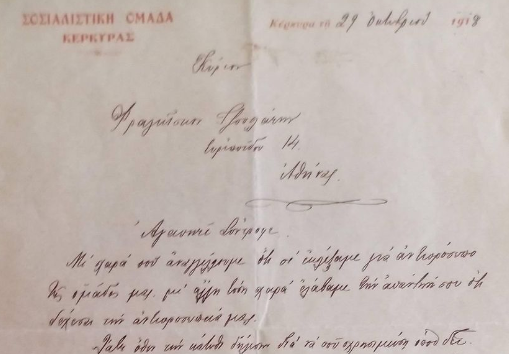 ΣΟΣΙΑΛΙΣΤΙΚΗ ΟΜΑΔΑ
ΚΕΡΚΥΡΑΣ
Κέρκυρα τῇ 29 Ὀκτωβρίου 1918
Κύριον
Φραγκῖσκον
Εὐριπίδου 14
Ἀθήνας.
Ἀγαπητέ Σύντροφε.
Μέ χαρά σοῦ ἀναγγέλλουμε ὅτι σέ ἐκλέξαμε γιά ἀντιπρόσωπο
τῆς ὁμάδος μας, μέ ἄλλη τόση χαρά ἐλάβαμε τήν ἀπάντησή σου ὅτι
δέχεσαι τήν ἀντιπροσωπεία μας.
τήν κάτωθι διά τά